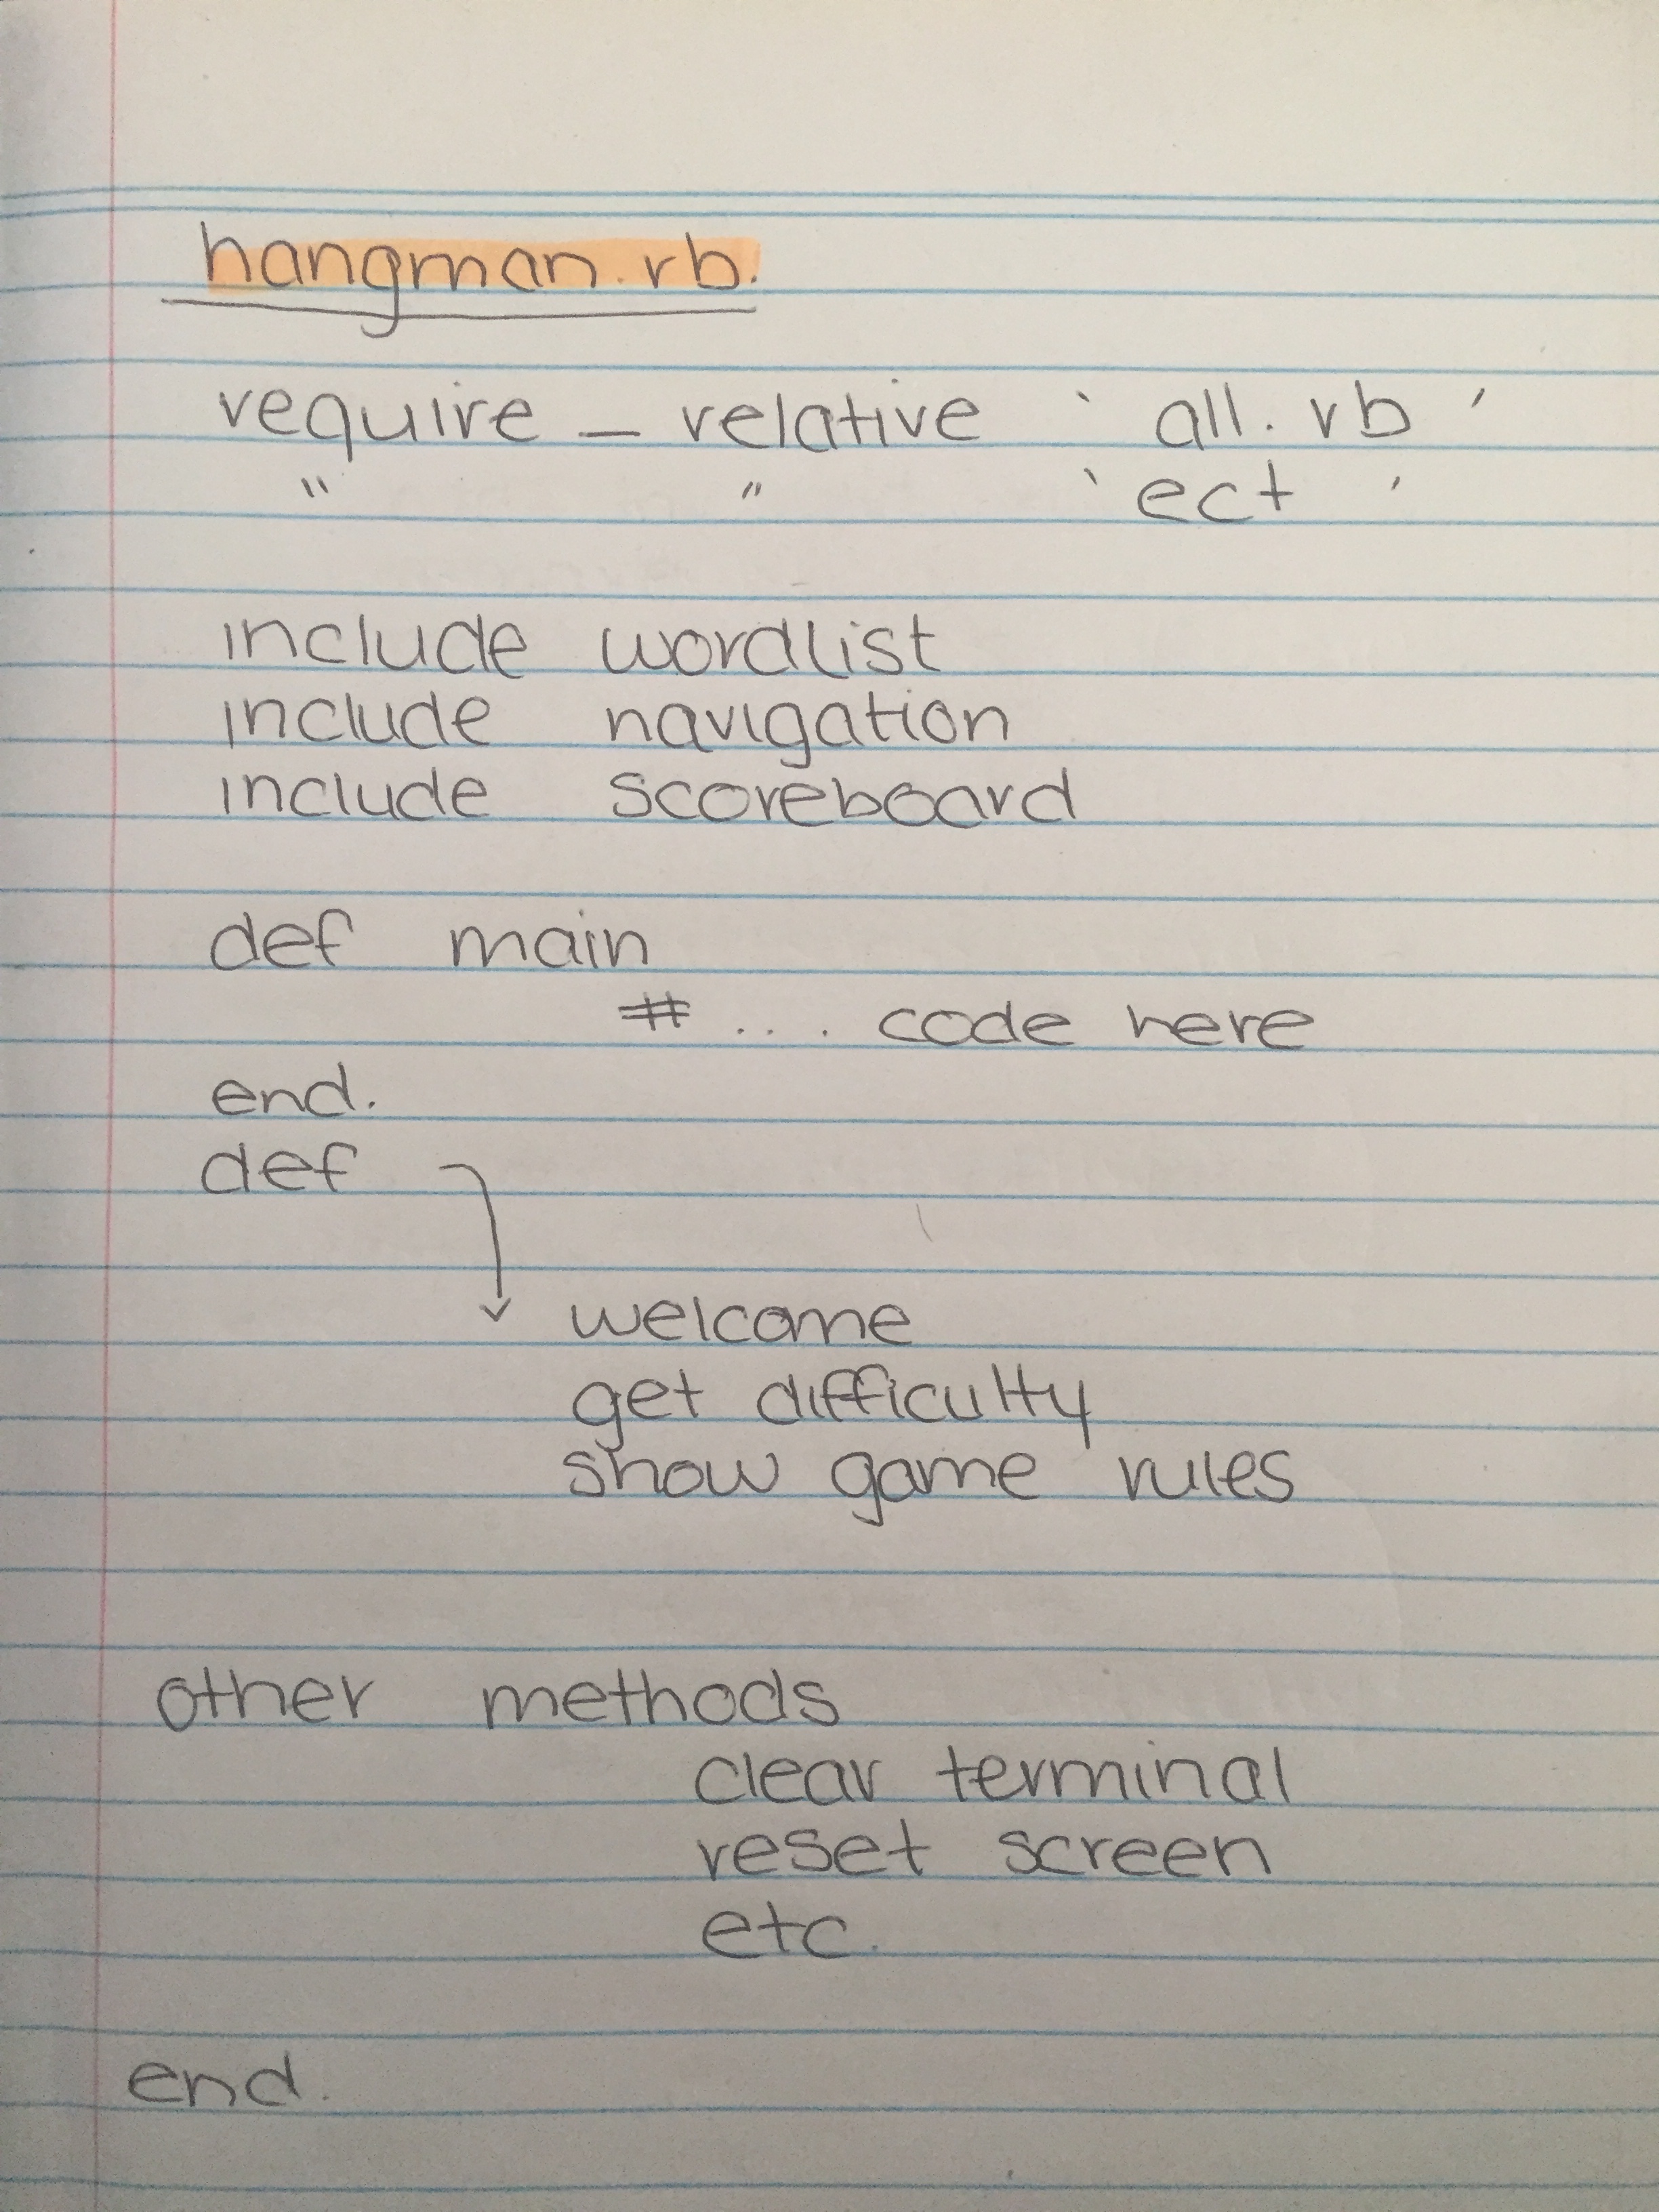 hangman.rb.
require_relative ‵ all.rb ′
" " ‵ ect ′
include wordlist
include navigation
include scoreboard
def main
# .... code here
end.
def
welcome
get difficulty
show game rules
other methods
clear terminal
reset screen
etc.
end.